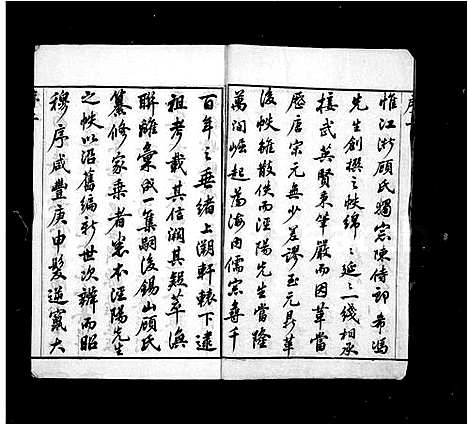 惟江浙顧氏獨宗陳侍郎希馮
先生創撰之帙綿綿延延一線相承
接武英賢秉筆嚴而因革當
歷唐宋元無少差謬至元鼎革
後帙雖散佚而涇陽先生當隆
萬間崛起為海內儒宗尋千
百年之垂緒上溯軒轅下逮
祖考載其信潤其疑萃渙
聯離彙成一集嗣後錫山顧氏
纂修家乘者寃不涇陽先生
之帙以沿舊編新世次辨而昭
穆序咸豐庚申髮逆竄大